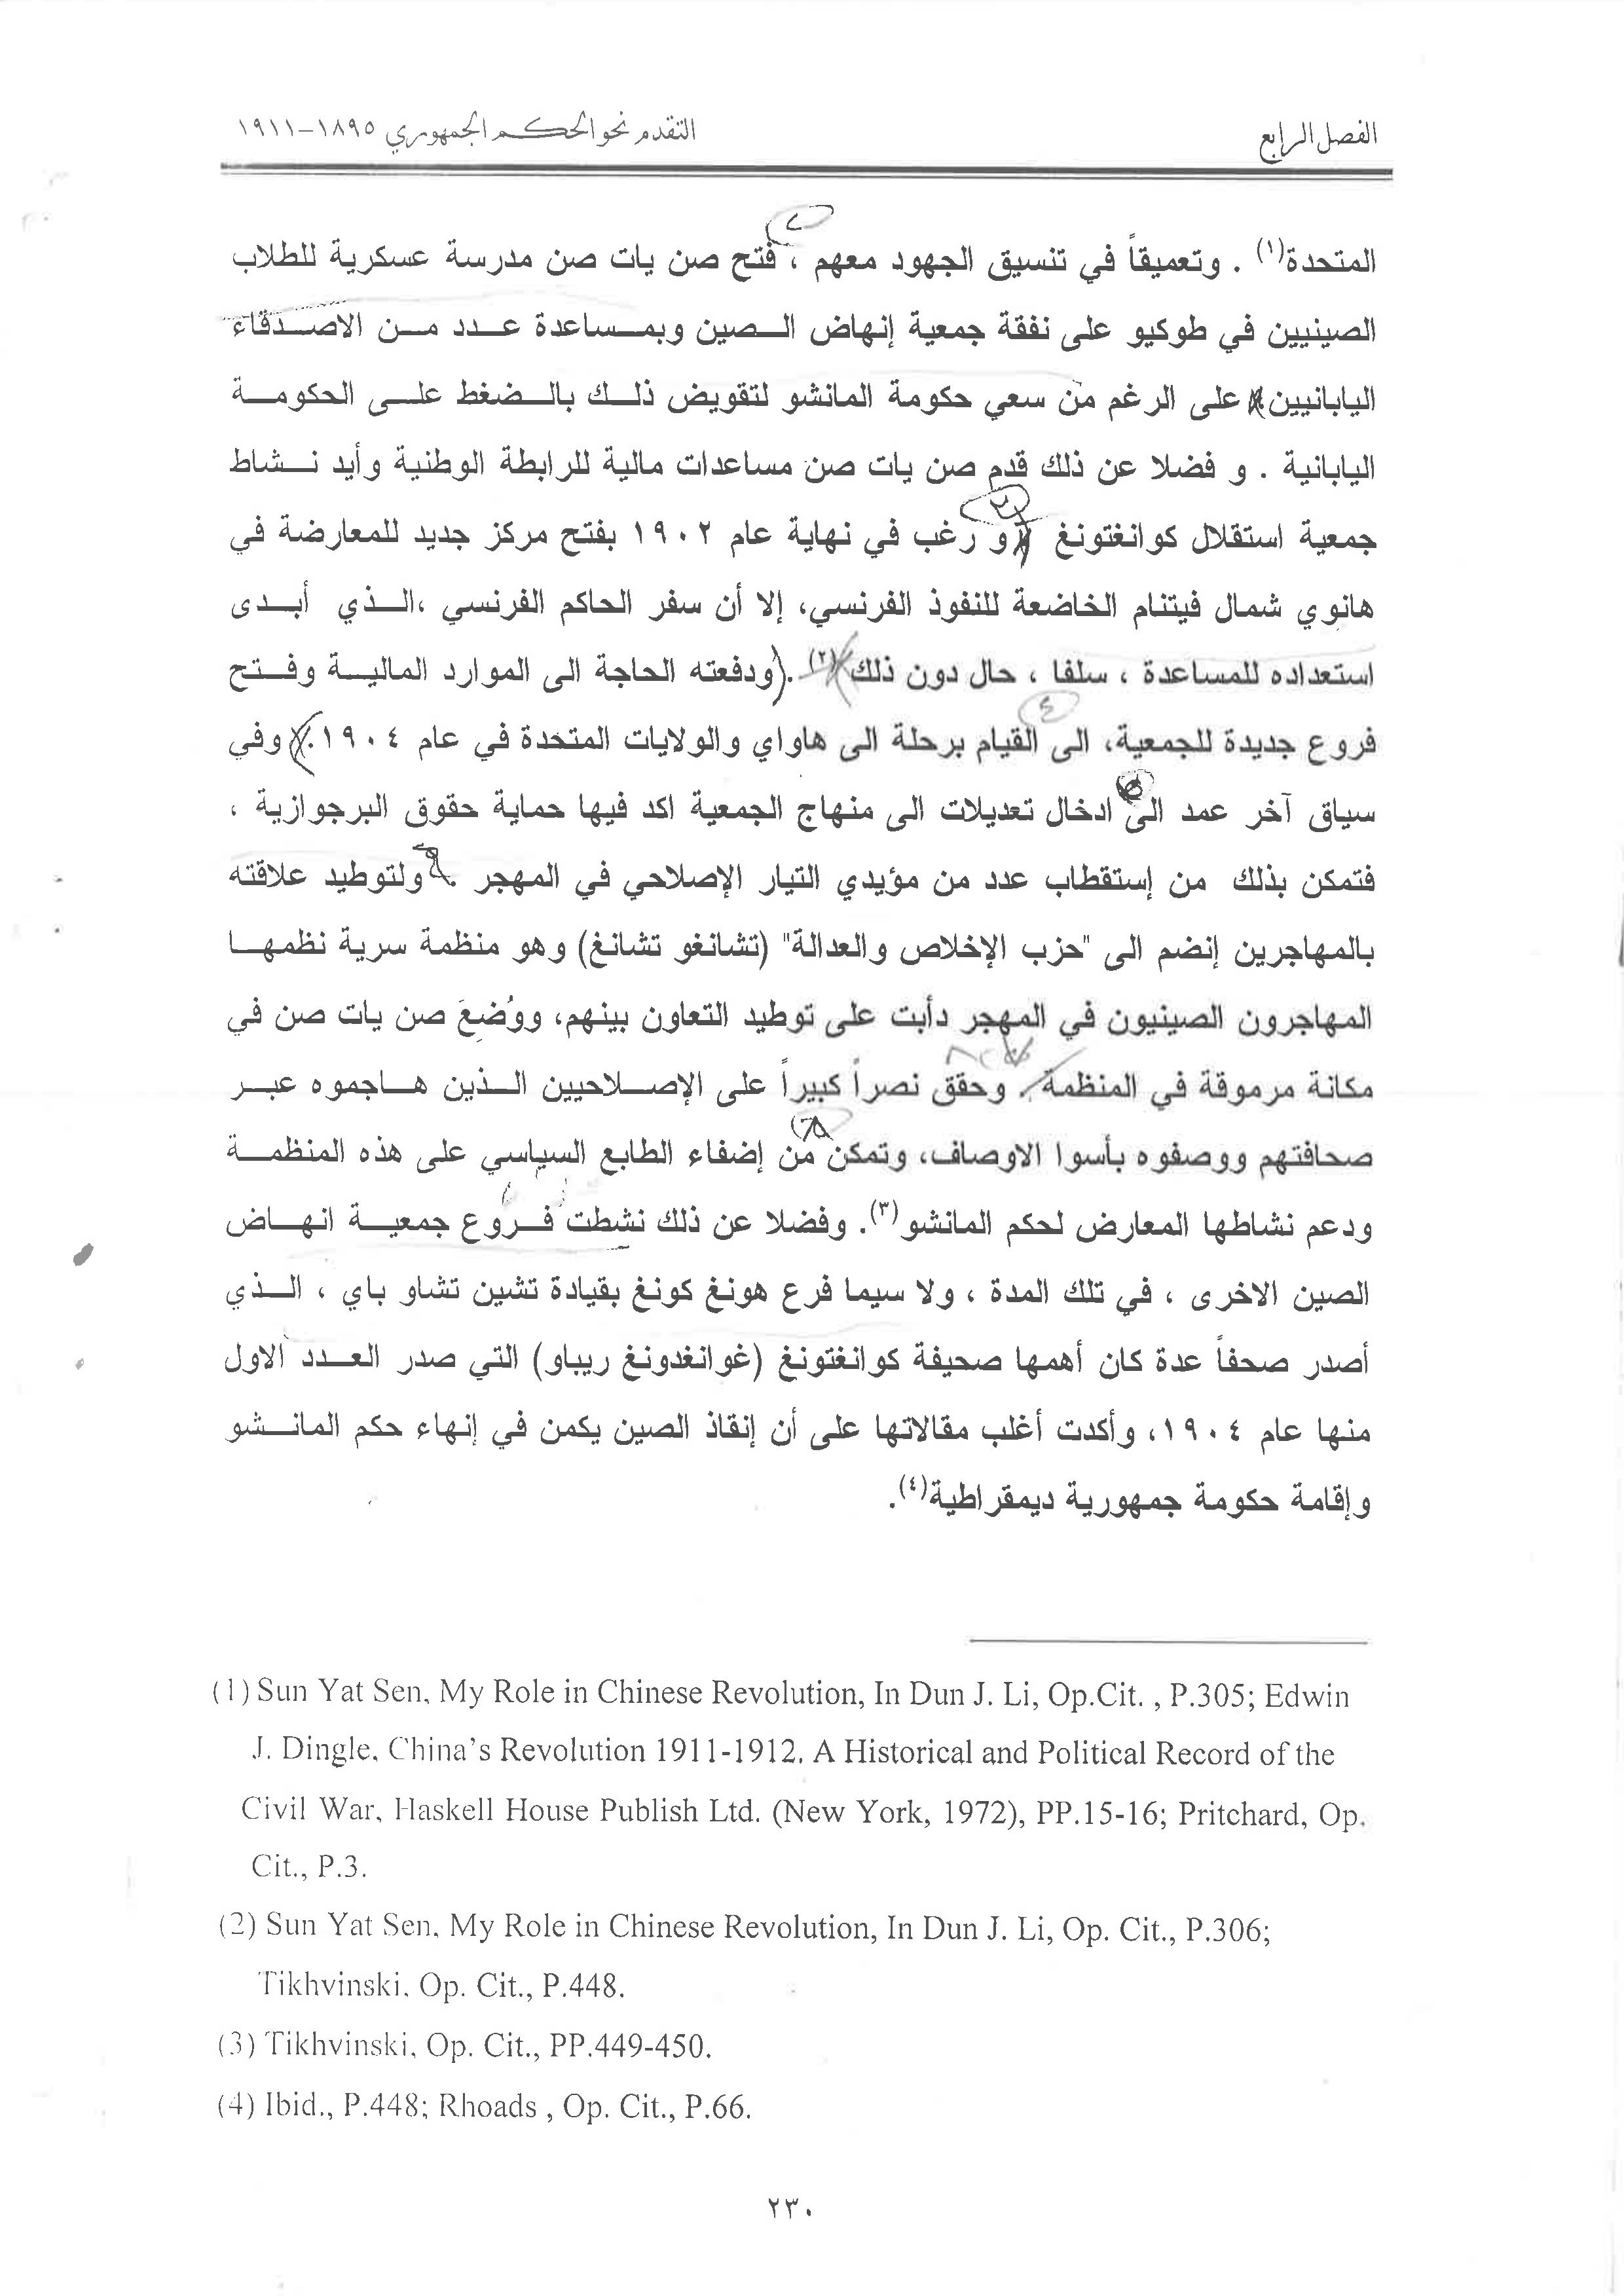 الفصل الرابع
التقدم نحو الحكم الجمهوري ١٨٩٥-١٩١١
المتحدة(١) . وتعميقاً في تنسيق الجهود معهم ، فتح صن يات صن مدرسة عسكرية للطلاب
الصينيين في طوكيو على نفقة جمعية إنهاض الصين وبمساعدة عدد من الاصدقاء
اليابانيين على الرغم من سعي حكومة المانشو لتقويض ذلك بالضغط على الحكومة
اليابانية . و فضلا عن ذلك قدم صن يات صن مساعدات مالية للرابطة الوطنية وأيد نشاط
جمعية استقلال كوانغتونغ و رغب في نهاية عام ١٩٠٢ بفتح مركز جديد للمعارضة في
هانوي شمال فيتنام الخاضعة للنفوذ الفرنسي، إلا أن سفر الحاكم الفرنسي ،الذي أبدى
استعداده للمساعدة ، سلفا ، حال دون ذلك(٢). (ودفعته الحاجة الى الموارد المالية وفتح
فروع جديدة للجمعية، الى القيام برحلة الى هاواي والولايات المتحدة في عام ١٩٠٤.) وفي
سياق آخر عمد الى ادخال تعديلات الى منهاج الجمعية اكد فيها حماية حقوق البرجوازية ،
فتمكن بذلك من إستقطاب عدد من مؤيدي التيار الإصلاحي في المهجر . ولتوطيد علاقته
بالمهاجرين إنضم الى "حزب الإخلاص والعدالة" (تشانغو تشانغ) وهو منظمة سرية نظمها
المهاجرون الصينيون في المهجر دأبت على توطيد التعاون بينهم، ووُضِعَ صن يات صن في
مكانة مرموقة في المنظمة. وحقق نصراً كبيراً على الإصلاحيين الذين هاجموه عبر
صحافتهم ووصفوه بأسوا الاوصاف، وتمكن من إضفاء الطابع السياسي على هذه المنظمة
ودعم نشاطها المعارض لحكم المانشو(٣). وفضلا عن ذلك نشطت فروع جمعية انهاض
الصين الاخرى ، في تلك المدة ، ولا سيما فرع هونغ كونغ بقيادة تشين تشاو باي ، الذي
أصدر صحفاً عدة كان أهمها صحيفة كوانغتونغ (غوانغدونغ ريباو) التي صدر العدد الاول
منها عام ١٩٠٤، وأكدت أغلب مقالاتها على أن إنقاذ الصين يكمن في إنهاء حكم المانشو
وإقامة حكومة جمهورية ديمقراطية(٤).
(1) Sun Yat Sen, My Role in Chinese Revolution, In Dun J. Li, Op.Cit. , P.305; Edwin
J. Dingle, China's Revolution 1911-1912, A Historical and Political Record of the
Civil War, Haskell House Publish Ltd. (New York, 1972), PP.15-16; Pritchard, Op.
Cit., P.3.
(2) Sun Yat Sen, My Role in Chinese Revolution, In Dun J. Li, Op. Cit., P.306;
Tikhvinski, Op. Cit., P.448.
(3) Tikhvinski, Op. Cit., PP.449-450.
(4) Ibid., P.448; Rhoads , Op. Cit., P.66.
٢٣٠